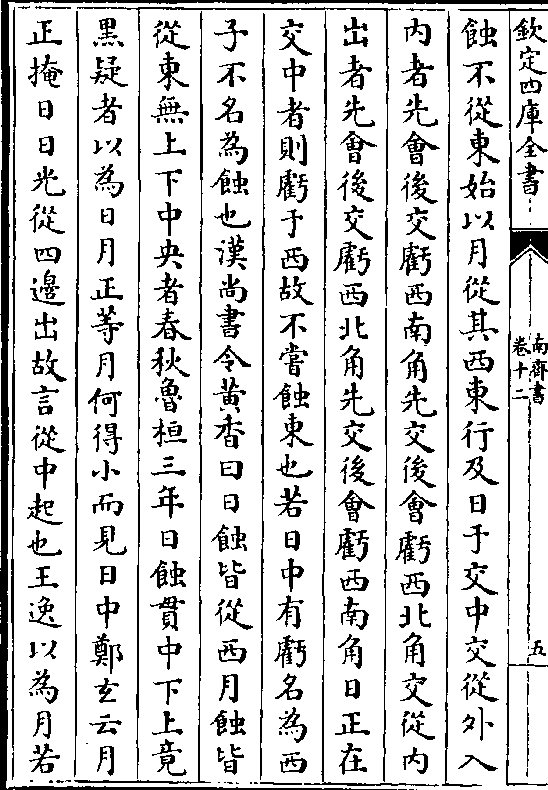 欽定四庫全書
南齊書
卷十二
五
蝕不從東始以月從其西東行及日于交中交從外入
内者先會後交虧西南角先交後會虧西北角交從内
出者先會後交虧西北角先交後會虧西南角日正在
交中者則虧于西故不嘗蝕東也若日中有虧名為西
子不名為蝕也漢尚書令黄香曰日蝕皆從西月蝕皆
從東無上下中央者春秋魯桓三年日蝕貫中下上竟
黑疑者以為日月正等月何得小而見日中鄭玄云月
正掩日日光從四邊出故言從中起也王逸以為月若